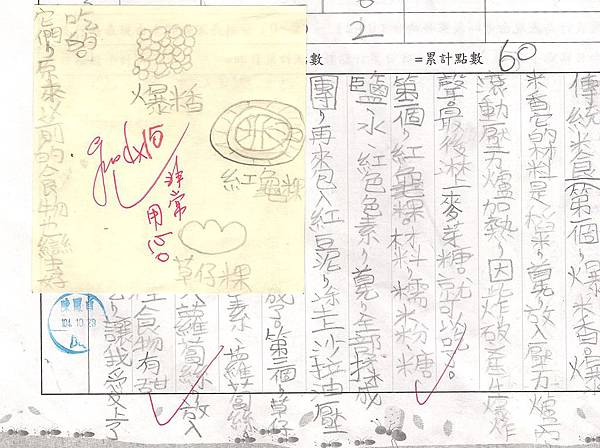 數 2 =累計點數 60
傳統米食(第一個,爆米香。爆
米香它的材料是糙米,首先放入壓力爐內
滾動壓力爐加熱,因此爆破產生爆炸
聲。最後淋上麥芽糖就可以吃了。
第二個,紅龜粿材料,糯米粉、糖、
鹽、水、紅色色素,首先全部揉成
團,再來包入紅豆泥,塗上沙拉油壓
成了。第三個,草仔
素、蘿蔔絲
蘿蔔絲放入
食物有甜
讓我愛上了
爆
紅龜粿
草仔粿
goodx10
非常用心
它們,原來以前的食物也蠻好
吃的。
104.10.28